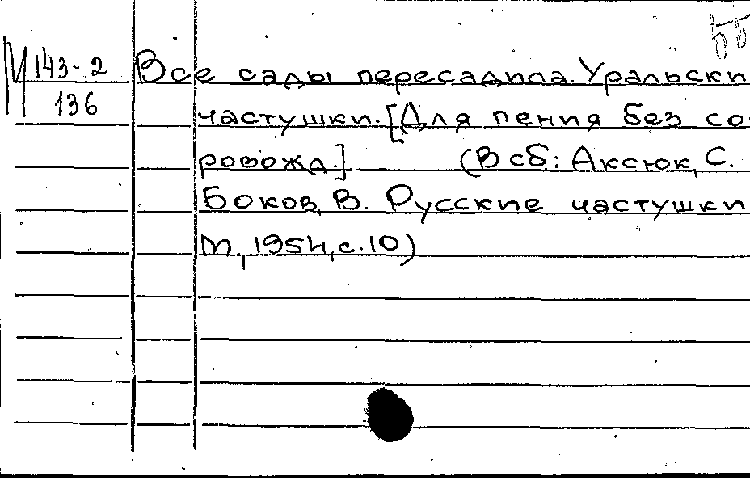 М 143-2 Все сады пересадила. Уральски
136 частушки. [Для пения без со
ровожд.] (В сб: Аксюк, С.
Боков, В. Русские частушки
М, 1954, с. 10)